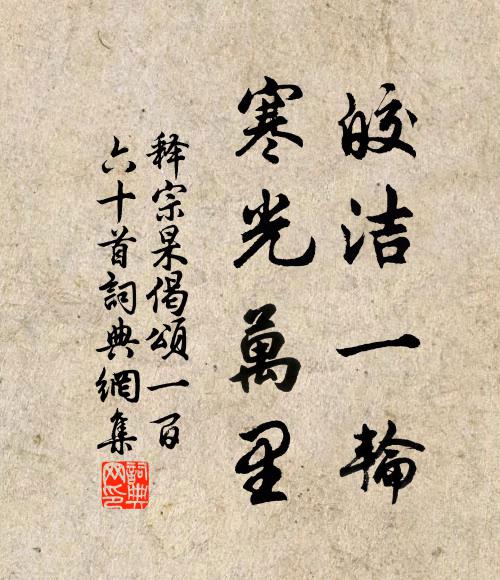 皎洁一輪
寒光萬里
释宗杲偈頌一百
六十首詞典網集
詞典
网印